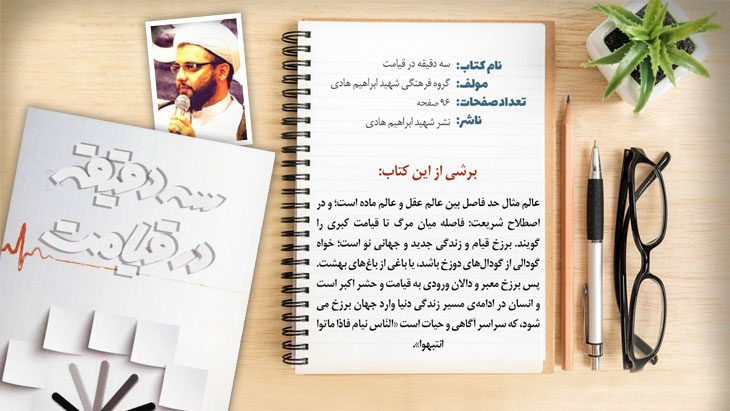 نام کتاب: سه دقیقه در قیامت
مولف: گروه فرهنگی شهید ابراهیم هادی
تعدادصفحات: ۹۶ صفحه
ناشر: نشر شهید ابراهیم هادی
برشی از این کتاب:
عالم مثال حد فاصل بین عالم عقل و عالم ماده است؛ و در
اصطلاح شریعت: فاصله میان مرگ تا قیامت کبری را
گویند. برزخ قیام و زندگی جدید و جهانی نو است؛ خواه
گودالی از گودال‌های دوزخ باشد، یا باغی از باغ‌های بهشت.
پس برزخ معبر و دالان ورودی به قیامت و حشر اکبر است
و انسان در ادامه‌ی مسیر زندگی دنیا وارد جهان برزخ می
شود، که سراسر آگاهی و حیات است «النّاس نیام فاذا ماتوا
انتبهوا».
سه دقیقه
در قیامت